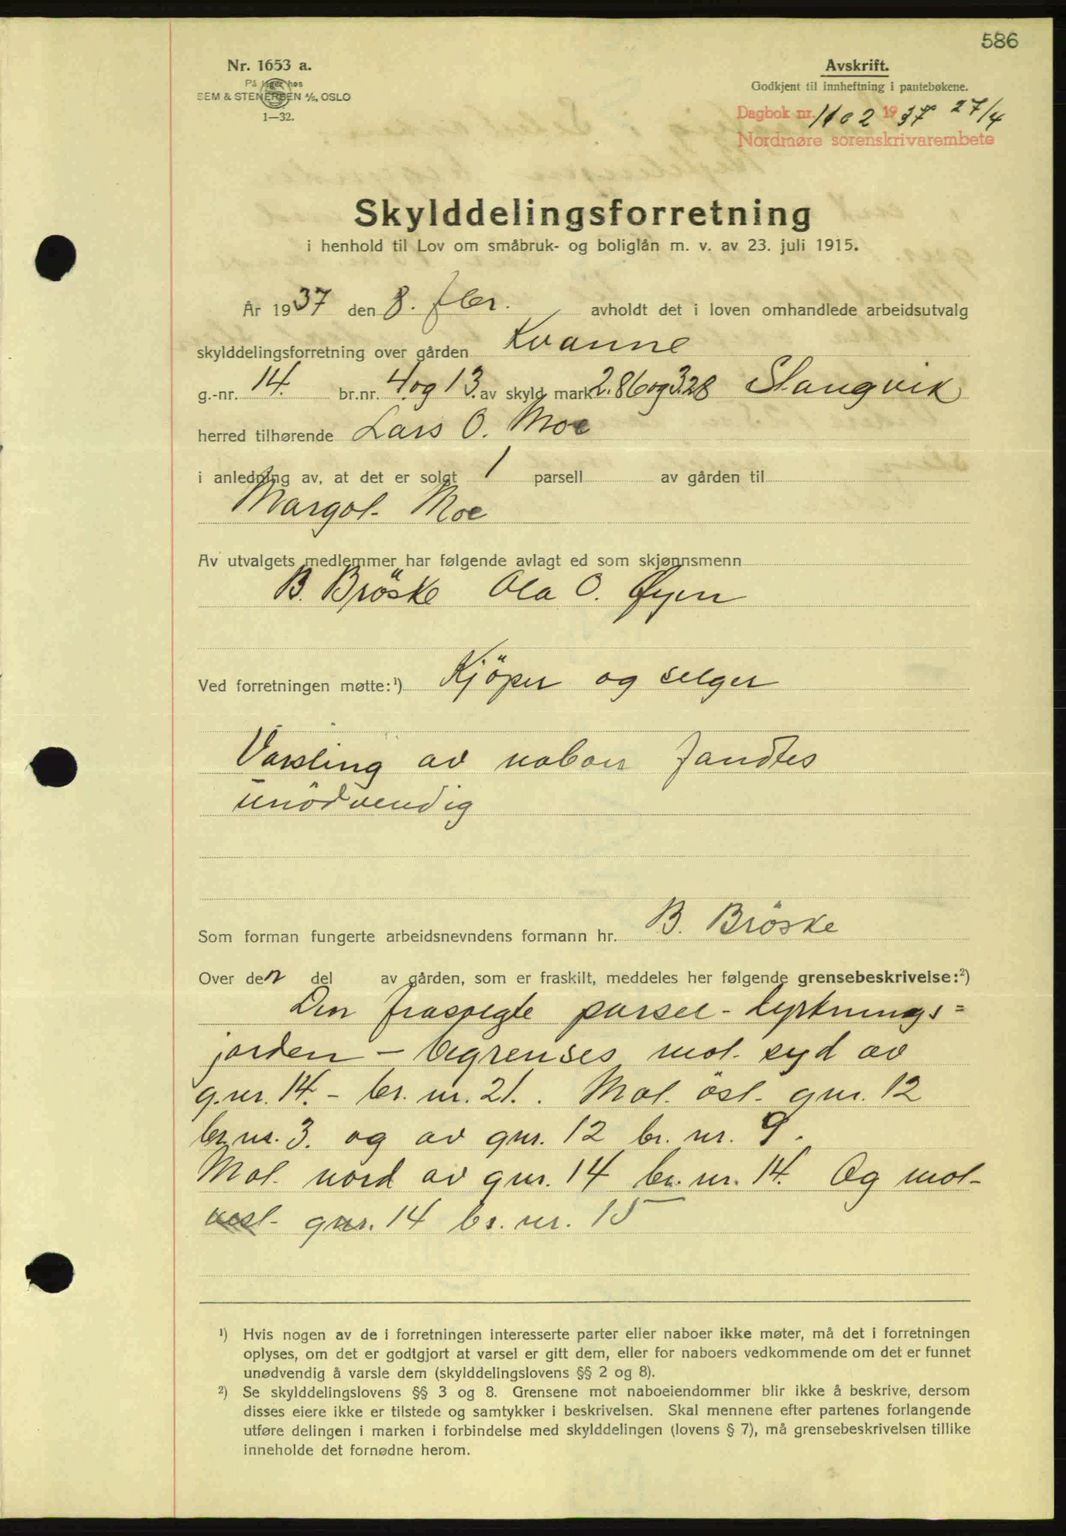 586
Nr. 1653 a.
På lager hos
SEM & STENERSEN A/S, OSLO
1—32.
Avskrift.
Godkjent til innheftning i pantebøkene.
Dagbok nr. 1102 1937 27/4
Nordmøre sorenskrivarembete
Skylddelingsforretning
i henhold til Lov om småbruk- og boliglån m. v. av 23. juli 1915.
År 1937 den 8. fbr. avholdt det i loven omhandlede arbeidsutvalg
skylddelingsforretning over gården Kvanne
g.-nr. 14. br.nr. 4. og 13. av skyld mark 2.86 og 3.28 Stangvik
herred tilhørende Lars O. Moe
i anledning av, at det er solgt 1 parsell av gården til
Margot Moe
Av utvalgets medlemmer har følgende avlagt ed som skjønnsmenn
B. Bröske Ola O. Øyen
Ved forretningen møtte:¹) Kjöper og selger
Varsling av naboer fandtes
unödvendig
Som forman fungerte arbeidsnevndens formann hr. B. Bröske
Over den del av gården, som er fraskilt, meddeles her følgende grensebeskrivelse:²)
Den frasolgte parsel - dyrknings=
jorden - begrenses mot syd av
g.nr. 14. - br. nr. 21. Mot öst gnr. 12
br. nr. 3. og av gnr. 12 br. nr. 9.
Mot nord av gnr. 14 br. nr. 14. Og mot
vest gnr. 14 br. nr. 15
¹) Hvis nogen av de i forretningen interesserte parter eller naboer ikke møter, må det i forretningen
oplyses, om det er godtgjort at varsel er gitt dem, eller for naboers vedkommende om det er funnet
unødvendig å varsle dem (skylddelingslovens §§ 2 og 8).
²) Se skylddelingslovens §§ 3 og 8. Grensene mot naboeiendommer blir ikke å beskrive, dersom
disses eiere ikke er tilstede og samtykker i beskrivelsen. Skal mennene efter partenes forlangende
utføre delingen i marken i forbindelse med skylddelingen (lovens § 7), må grensebeskrivelsen tillike
inneholde det fornødne herom.